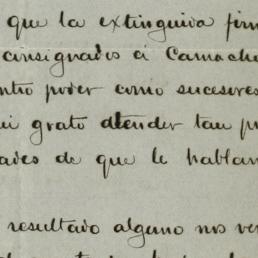 que la extinguida firm
consignados á Camacho
ntro poder como sucesores
ui grato atender tau p
ades de que le hablam
resultado alguno nos ve